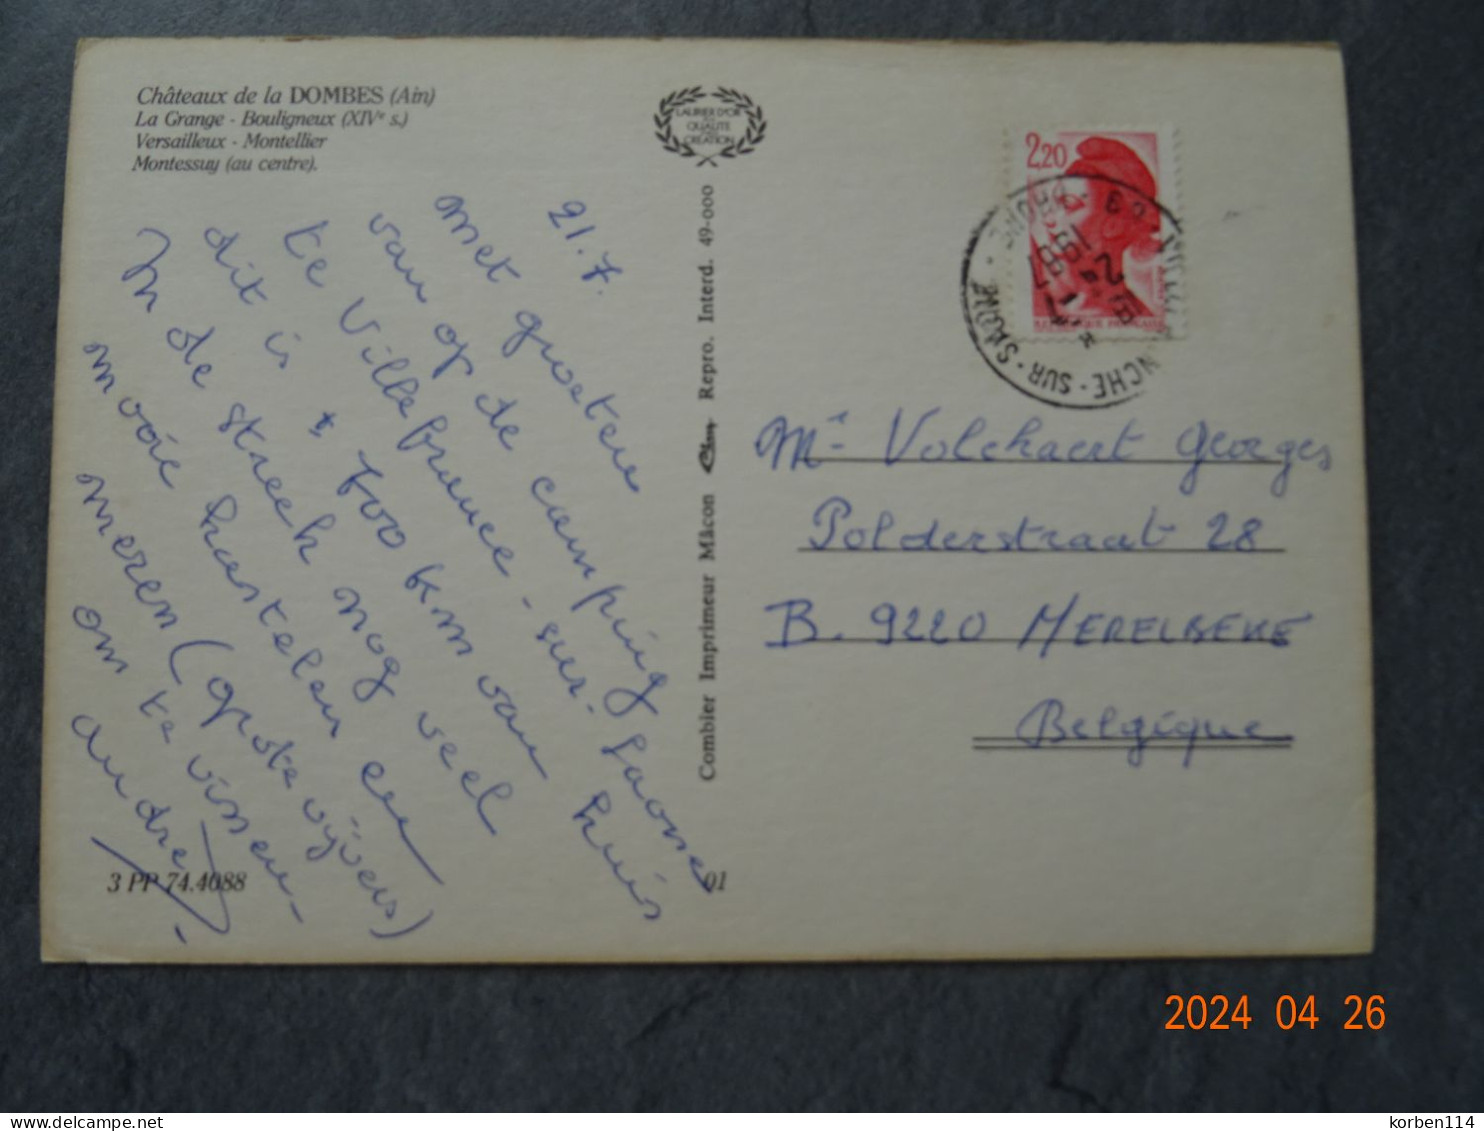 Châteaux de la DOMBES (Ain)
La Grange - Bouligneux (XIVe s.)
Versailleux - Montellier
Montessuy (au centre).
LAURIER D'OR
QUALITÉ
CRÉATION
21.7.
Met groeten
van op de camping
te Villefrance-sur-Saone
dit is ± 700 km van huis
In de streek nog veel
mooie kastelen en
meren (grote vijvers)
om te vissen -
andré
3 PP 74.4088
01
Combier Imprimeur Mâcon Repro. Interd. 49-000
2,20
1987
NCHE - SUR - SAÔNE - RHONE
Mr Volckaert Georges
Polderstraat 28
B. 9220 MERELBEKE
Belgique
2024 04 26
korben114